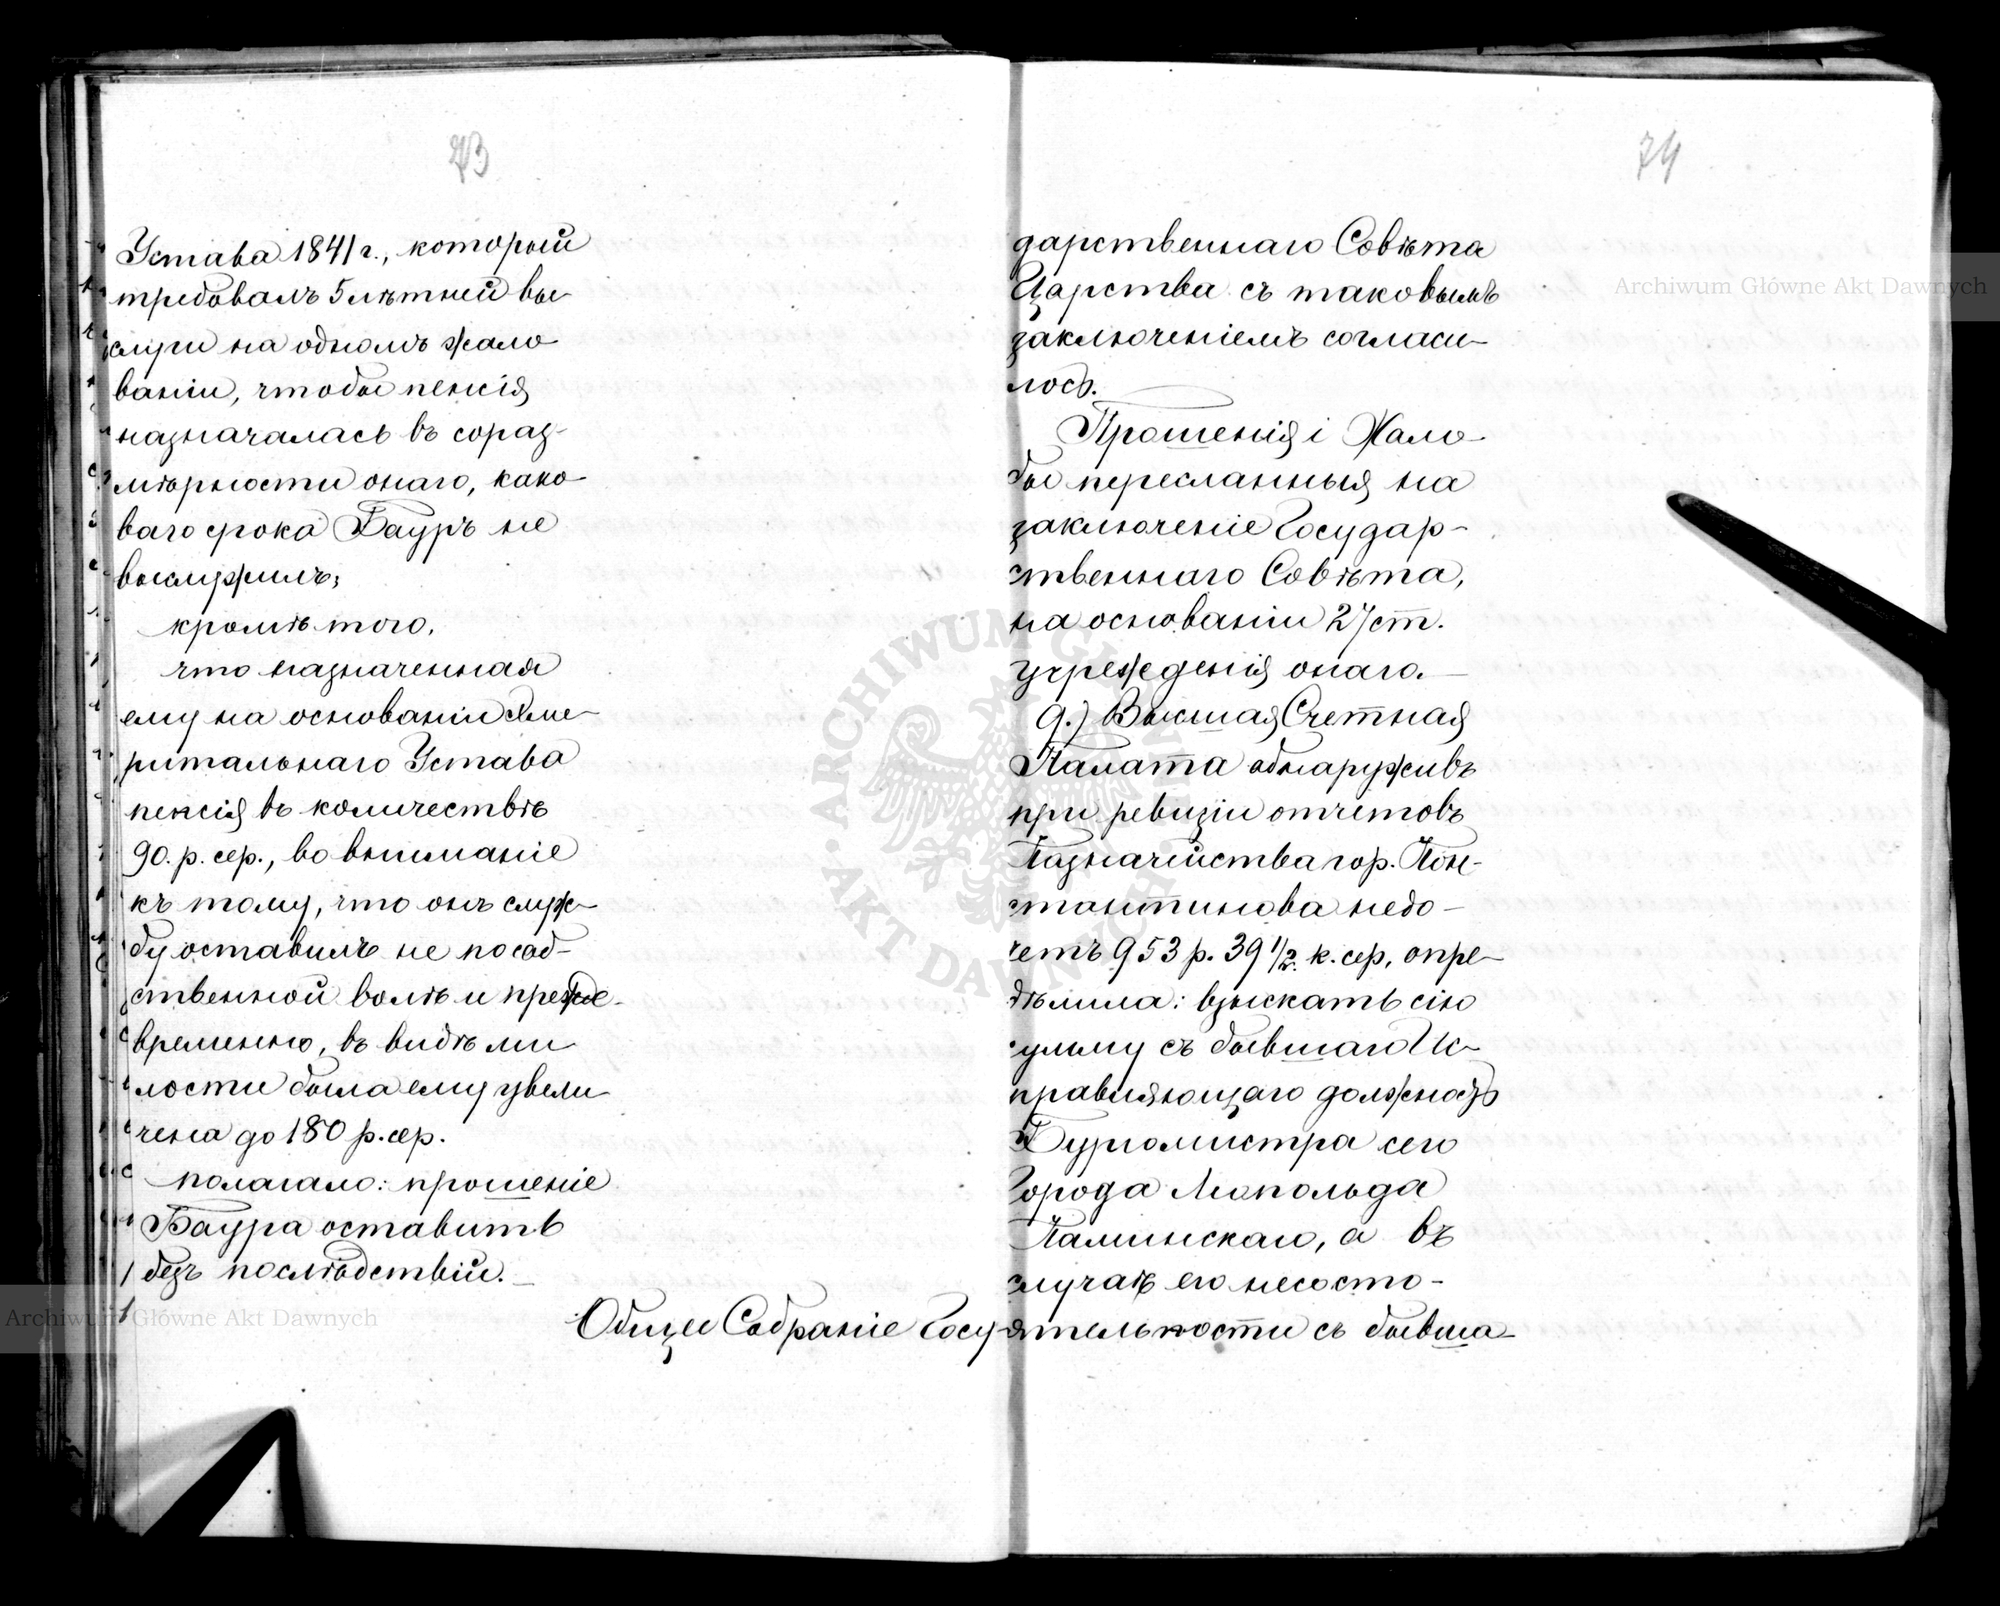 73
Устава 1841 г., который
требовалъ 5 лѣтней вы-
слуги на одномъ жало-
ваніи, чтобы пенсія
назначалась въ сораз-
мѣрности онаго, како-
ваго срока Бауръ не
выслужилъ;
кромѣ того,
что назначенная
ему на основаніи Эме-
ритальнаго Устава
пенсія въ количествѣ
90. р. сер., во вниманіе
къ тому, что онъ служ-
бу оставилъ не по соб-
ственной волѣ и прежде-
временно, въ видѣ ми-
лости была ему увели-
чена до 180 р. сер.
полагало: прошеніе
Баура оставить
безъ послѣдствій.
Общее Собраніе Госу-
74
дарственнаго Совѣта
Царства съ таковымъ
заключеніемъ согласи-
лось.
Прошенія і Жало-
бы пересланныя на
заключеніе Государ-
ственнаго Совѣта,
на основаніи 27 ст.
учрежденія онаго.
9.) Высшая Счетная
Палата обнаруживъ
при ревизіи отчетовъ
Казначейства гор. Кон-
стантинова недо-
четъ 953 р. 39 1/2. к. сер, опре-
дѣлила: взыскать сію
сумму съ бывшаго Ис-
правляющаго должность
Бургомистра сего
города Леопольда
Каминскаго, а въ
случаѣ его несосто-
ятельности съ бывша-
Archiwum Główne Akt Dawnych
Archiwum Główne Akt Dawnych
ARCHIWUM GŁÓWNE AKT DAWNYCH